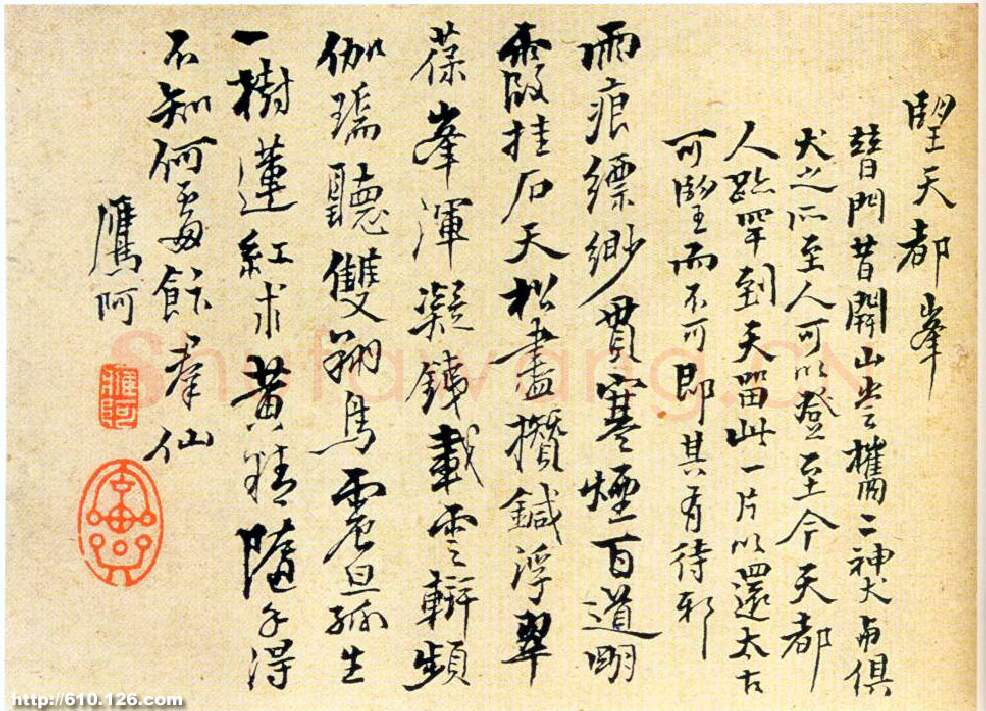 望天都峯
普門昔開山嘗攜二神犬與俱
犬之所至人可以登至今天都
人跡罕到天留此一片以還太古
可望而不可即其有待邪
雨痕縹緲貫寒煙百道明
霞挂石天松盡攢鍼浮翠
葆峯渾凝鐵載雲輧頻
伽瑞聽雙翔鳥曇旦孤生
一樹蓮紅求黃精隨手得
不知何處飯羣仙
鷹阿
鷹阿
http://610.126.com